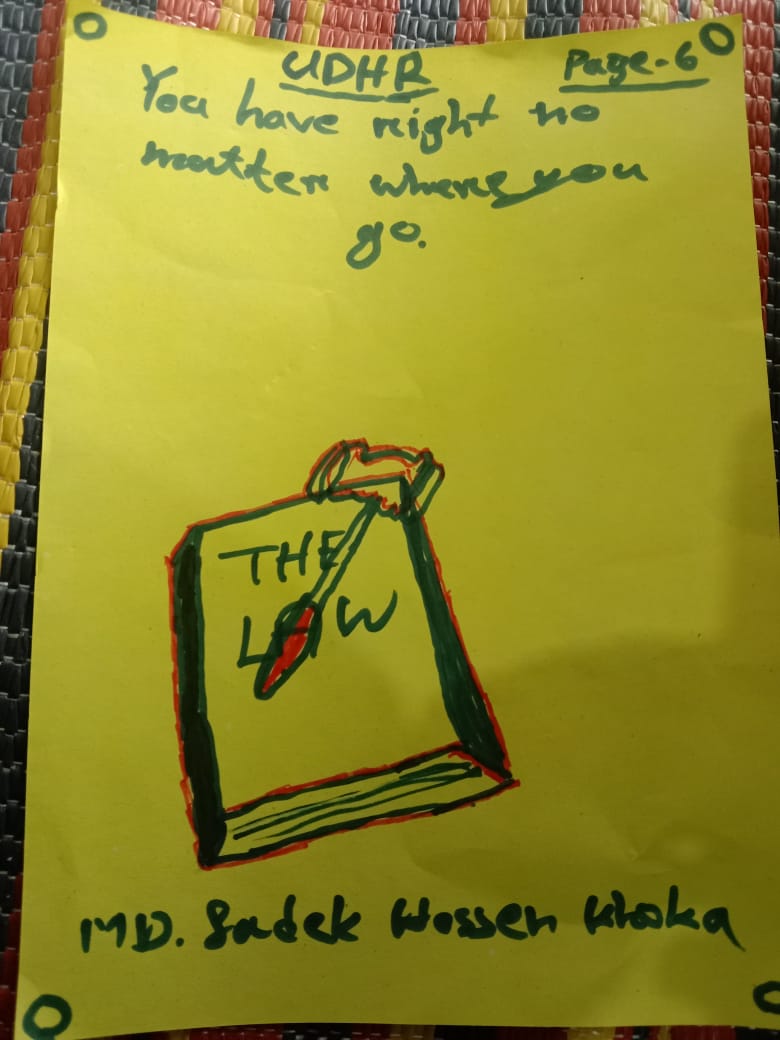 UDHR
Page-6
You have right no
matter where you
go.
THE
LAW
MD. Sadek Hossen Khoka